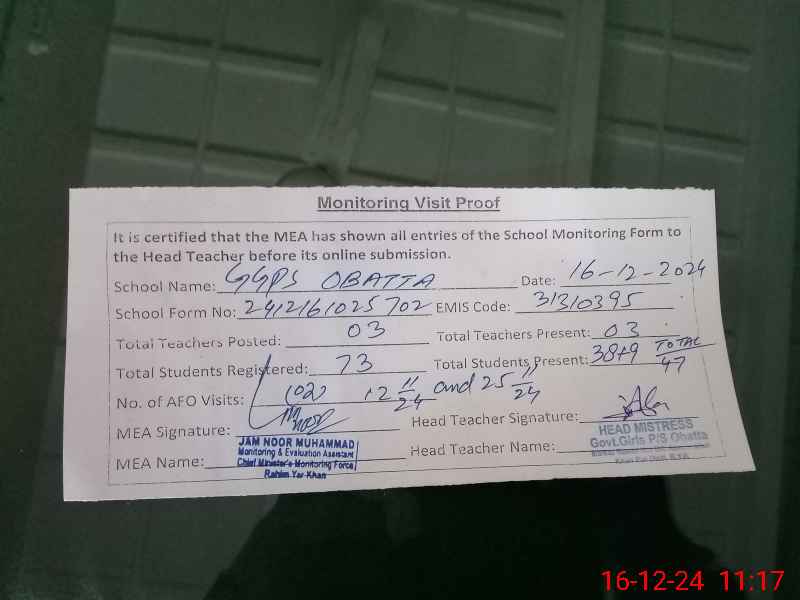 Monitoring Visit Proof
It is certified that the MEA has shown all entries of the School Monitoring Form to
the Head Teacher before its online submission.
School Name: GGPS OBATTA Date: 16-12-2024
School Form No: 2412161025702 EMIS Code: 31310395
Total Teachers Posted: 03 Total Teachers Present: 03
Total Students Registered: 73 Total Students Present: 38+9 TOTAL/47
No. of AFO Visits: (02) 12 11/24 and 25 11/24
MEA Signature: Head Teacher Signature:
MEA Name: Head Teacher Name:
JAM NOOR MUHAMMAD
Monitoring & Evaluation Assistant
Chief Minister's Monitoring Force
Rahim Yar Khan
HEAD MISTRESS
Govt. Girls P/S Obatta
16-12-24 11:17